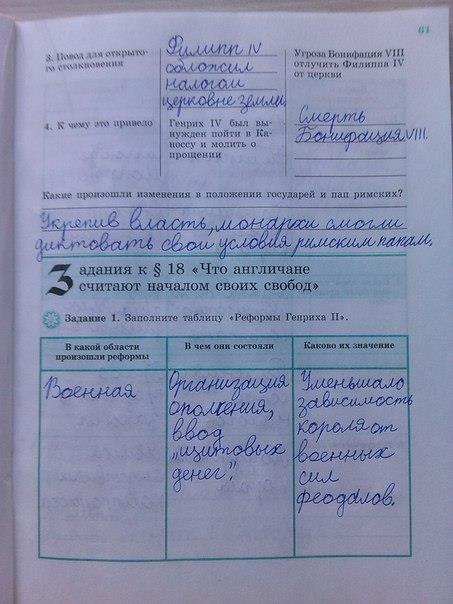 61
3. Повод для открыто-
го столкновения
Филипп IV
обложил
налогом
церковне земли,
Угроза Бонифация VIII
отлучить Филиппа IV
от церкви
4. К чему это привело
Генрих IV был вы-
нужден пойти в Ка-
носсу и молить о
прощении
Смерть
Бонифация VIII.
Какие произошли изменения в положении государей и пап римских?
Укрепив власть, монархи смогли
диктовать свои условия римским папам.
Задания к § 18 «Что англичане
считают началом своих свобод»
Задание 1. Заполните таблицу «Реформы Генриха II».
В какой области
произошли реформы
В чем они состояли
Каково их значение
Военная
Организация
ополчения,
ввод
„щитовых
денег".
Уменьшало
зависимость
короля от
военных
сил
феодалов.